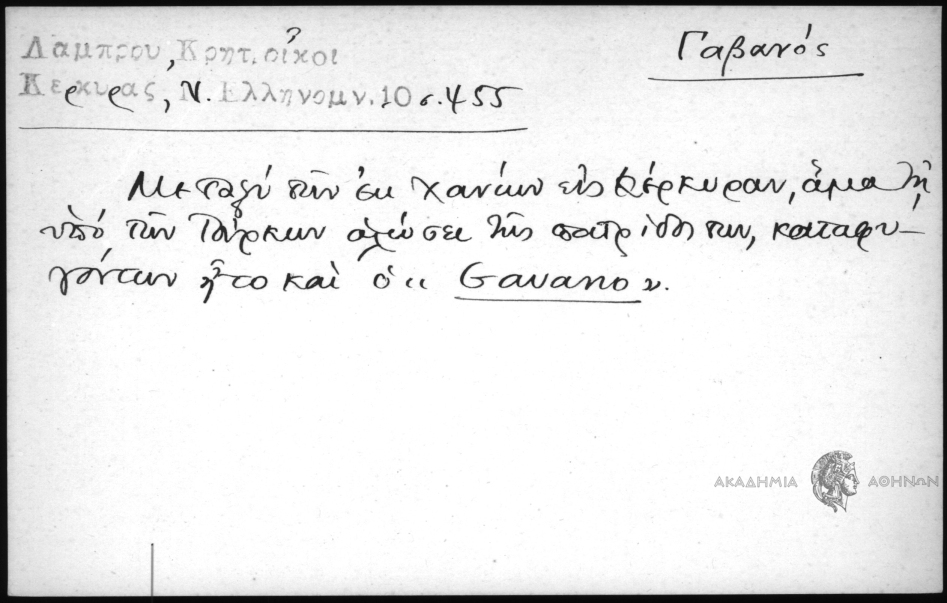 Λαμπρου, Κρητ. οἶκοι
Κερκυρας, Ν. Ελληνομν. 10 σ. 455
Γαβανός
Μεταξύ τῶν ἐκ Χανίων εἰς Κέρκυραν, ἅμα τῇ
ὑπό τῶν Τούρκων ἁλώσει τῆς πατρίδος των, καταφυ-
γόντων ἦτο καὶ ὁ «Gavano».
ΑΚΑΔΗΜΙΑ ΑΘΗΝΩΝ